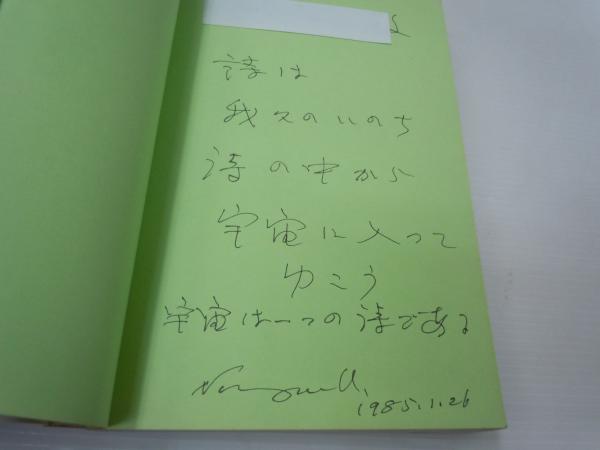 詩は
我々のいのち
詩の中から
宇宙に入って
ゆこう
宇宙は一つの詩である
1985.1.26